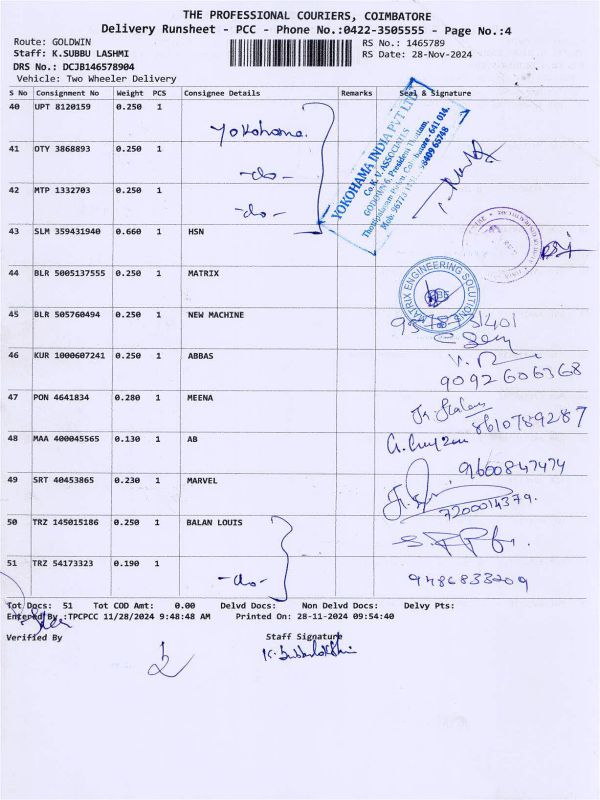 THE PROFESSIONAL COURIERS, COIMBATORE
Delivery Runsheet - PCC - Phone No.:0422-3505555 - Page No.:4
Route: GOLDWIN RS No.: 1465789
Staff: K.SUBBU LASHMI RS Date: 28-Nov-2024
DRS No.: DCJB146578904
Vehicle: Two Wheeler Delivery
S No Consignment No Weight PCS Consignee Details Remarks Seal & Signature
40 UPT 8120159 0.250 1 Yokohama.
41 OTY 3868893 0.250 1 -do-
42 MTP 1332703 0.250 1 -do-
YOKOHAMA INDIA PVT LTD
Co. K.V. ASSOCIATES
43 SLM 359431940 0.660 1 HSN
44 BLR 5005137555 0.250 1 MATRIX
MATRIX ENGINEERING SOLUTIONS
45 BLR 505760494 0.250 1 NEW MACHINE
46 KUR 1000607241 0.250 1 ABBAS
9092606368
47 PON 4641834 0.280 1 MEENA
8610789287
48 MAA 400045565 0.130 1 AB
9600847474
49 SRT 40453865 0.230 1 MARVEL
7200014379.
50 TRZ 145015186 0.250 1 BALAN LOUIS
51 TRZ 54173323 0.190 1 -do-
9486833209
Tot Docs: 51 Tot COD Amt: 0.00 Delvd Docs: Non Delvd Docs: Delvy Pts:
Entered By :TPCPCC 11/28/2024 9:48:48 AM Printed On: 28-11-2024 09:54:40
Verified By Staff Signature